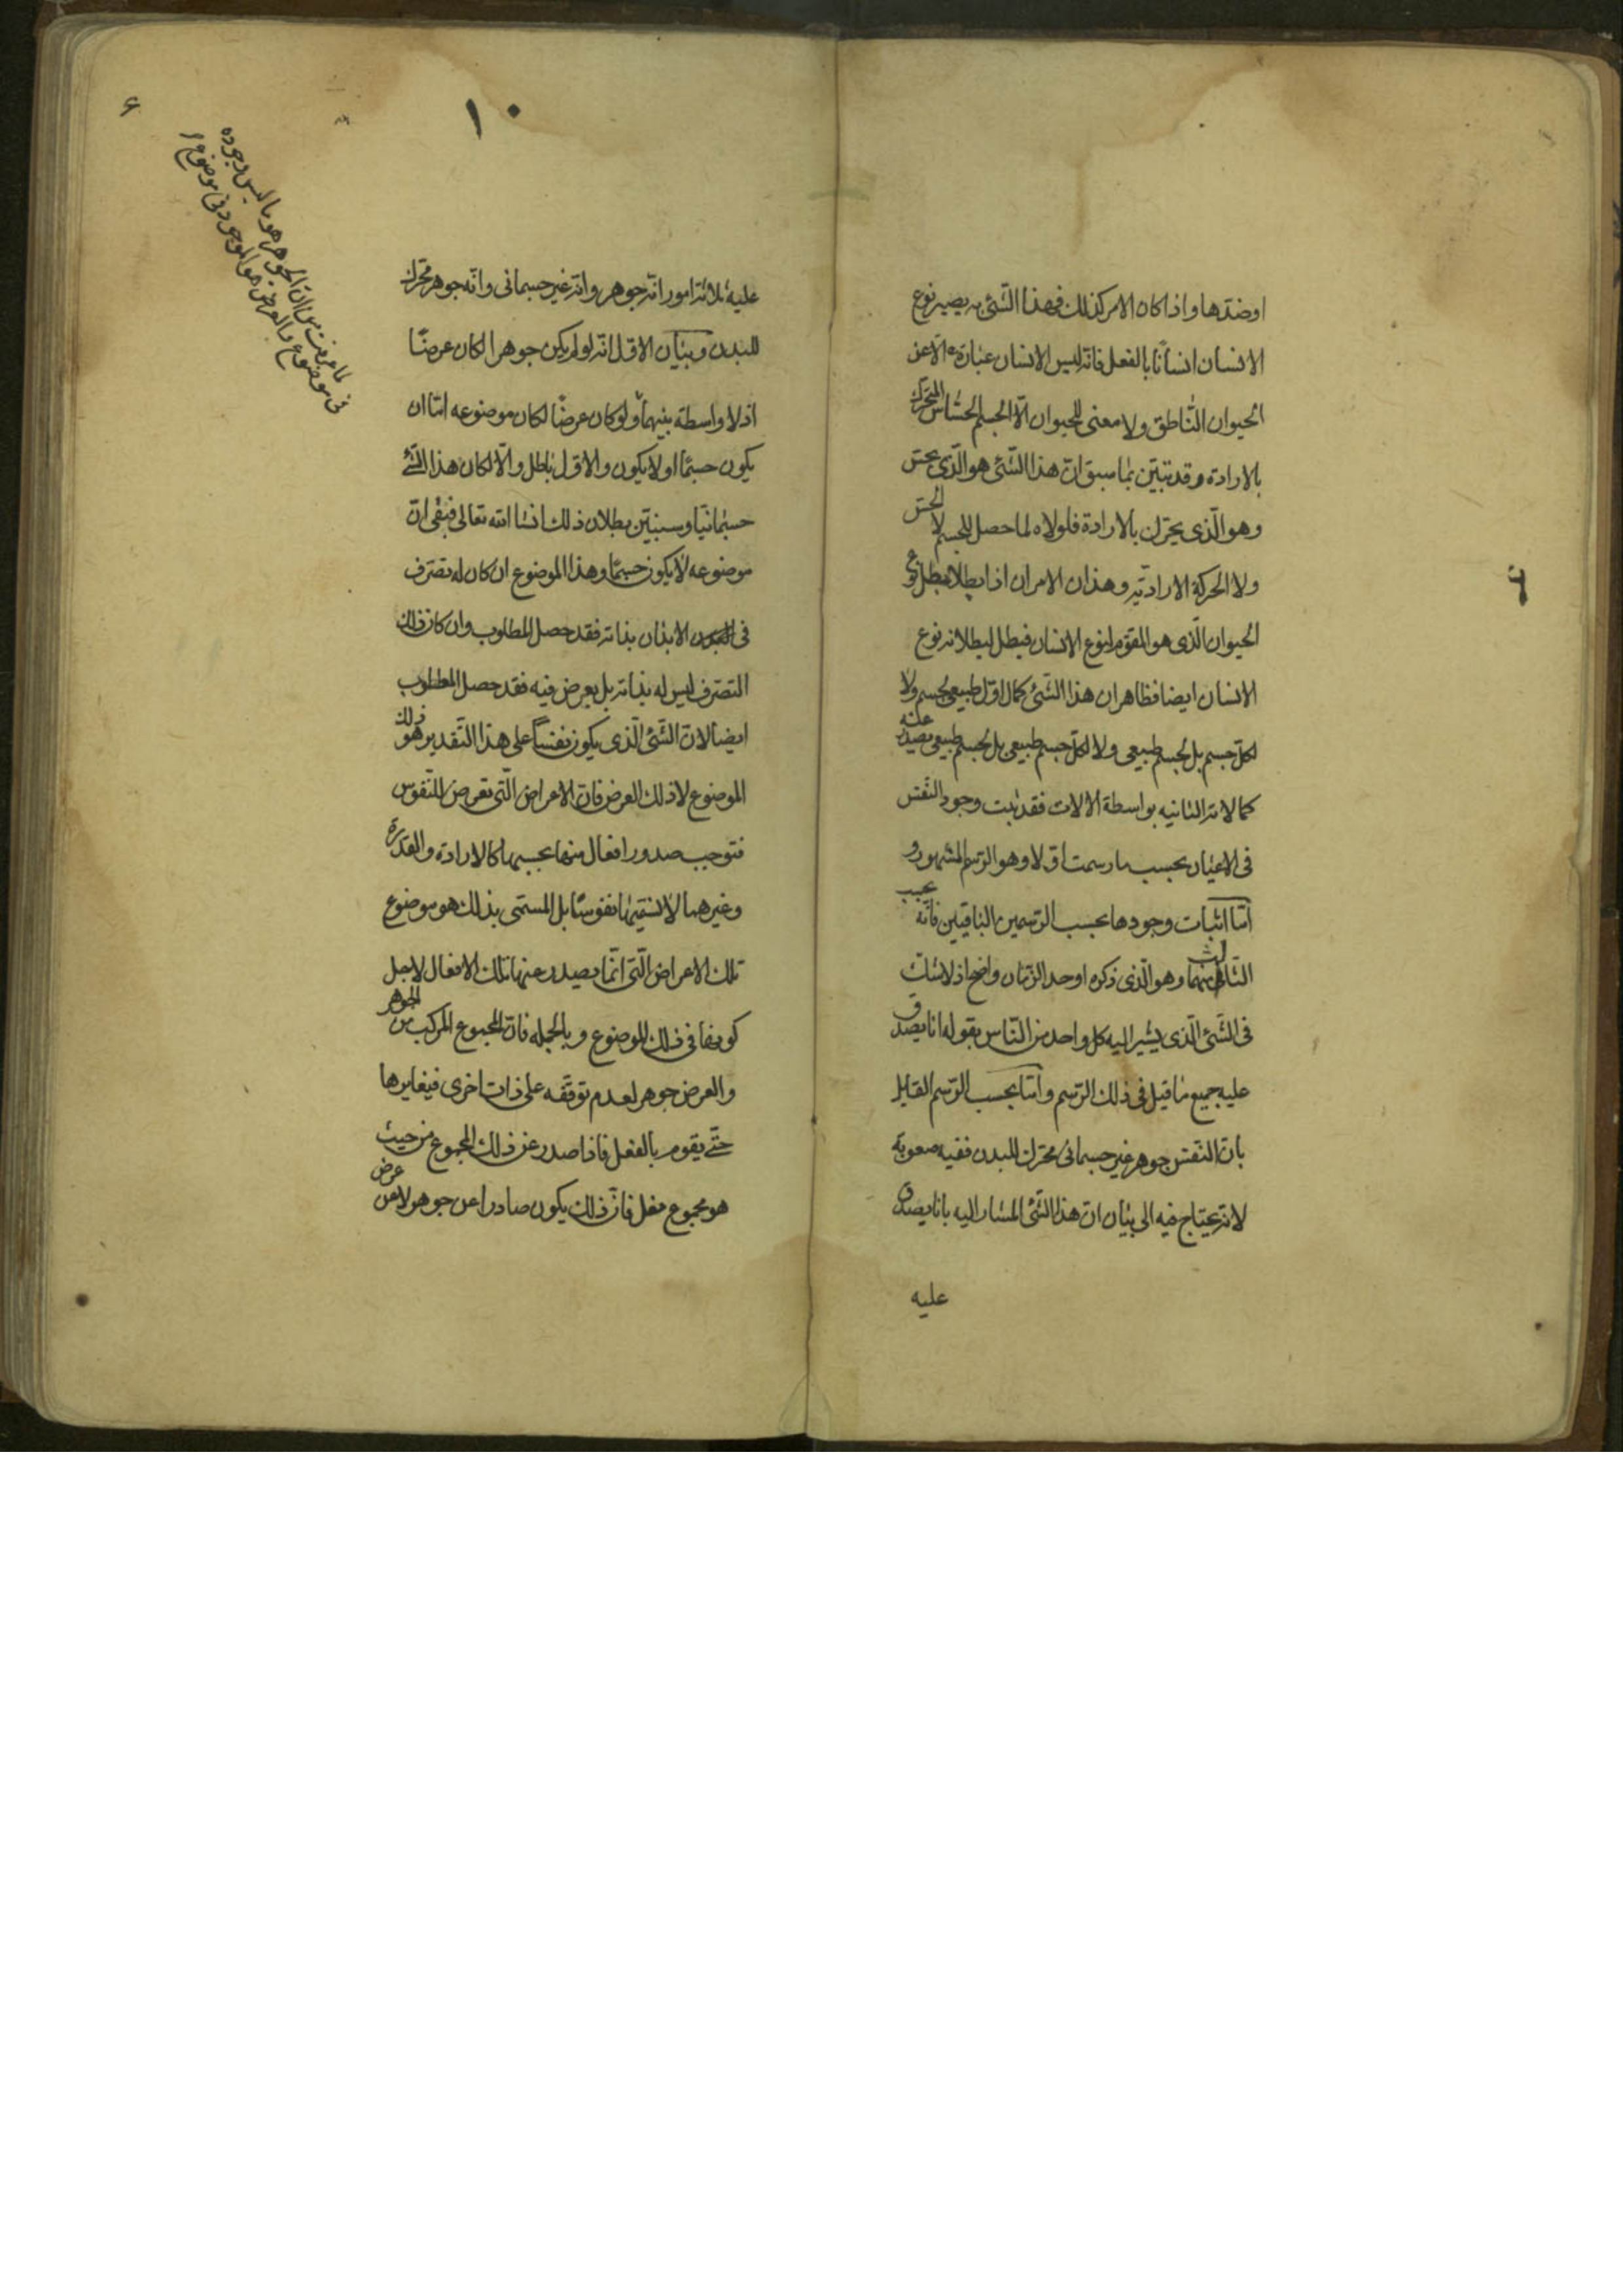 اوضدها واذا كان الامر كذلك فهذا الشئ به يصير نوع
الانسان انسانا بالفعل فانه ليس الانسان عبارة الا عن
الحيوان الناطق ولا معنى للحيوان الا الجسم الحساس المتحرك
بالارادة وقد تبين بما سبق ان هذا الشئ هو الذى يحس
وهو الذى يحرك بالارادة فلولاه لما حصل للجسم لا الحس
ولا الحركة الارادية وهذان الامران اذا بطلا بطل نوع
الحيوان الذى هو المقوم لنوع الانسان فيبطل لبطلانه نوع
الانسان ايضا فظاهر ان هذا الشئ كمال اول طبيعى لجسم ولا
لكل جسم بل لجسم طبيعى ولا لكل جسم طبيعى بل لجسم طبيعى يصدر عنه
كمالاته الثانيه بواسطة الالات فقد ثبت وجود النفس
فى الاعيان بحسب ما رسمت اولا وهو الرسم المشهور و
اما اثبات وجودها بحسب الرسمين الباقيين فانه يجب
الثالث منهما وهو الذى ذكره اوحد الزمان واضح اذ لا شك
فى الشئ الذى يشير اليه كل واحد من الناس بقوله انا يصدق
عليه جميع ما قيل فى ذلك الرسم واما بحسب الرسم القايل
بان النفس جوهر غير جسمانى محرك للبدن ففيه صعوبة
لانه يحتاج فيه الى بيان ان هذا الشئ المشار اليه بانا يصدق
عليه
٦
١٠
عليه ثلاثة امور انه جوهر وانه غير جسمانى وانه جوهر محرك
للبدن وبيان الاول انه لو لم يكن جوهرا لكان عرضا
اذ لا واسطة بينهما ولو كان عرضا لكان موضوعه اما ان
يكون جسما او لا يكون والاول باطل والا لكان هذا الشئ
جسمانيا وسنبين بطلان ذلك انشا الله تعالى فبقى ان
موضوعه لا يكون جسما وهذا الموضوع ان كان له تصرف
فى الابدان بذاته فقد حصل المطلوب وان كان ذلك
التصرف ليس له بذاته بل بعرض فيه فقد حصل المطلوب
ايضا لان الشئ الذى يكون نفسا على هذا التقدير هو ذلك
الموضوع لا ذلك العرض فان الاعراض التى تعرض للنفوس
فتوجب صدور افعال منها بحسبها كالارادة والقدرة
وغيرهما لا نسميها نفوسا بل المسمى بذلك هو موضوع
تلك الاعراض التى انما يصدر عنها تلك الافعال لاجل
كونها فى ذلك الموضوع وبالجمله فان المجموع المركب من الجوهر
والعرض جوهر لعدم توقفه على ذات اخرى فيغايرها
حتى يقوم بالفعل فاذا صدر عن ذلك المجموع من حيث
هو مجموع فعل فان ذلك يكون صادرا عن جوهر لا عن عرض
لما عرفت من ان الجوهر هو ما ليس وجوده
فى موضوع والعرض هو الموجود فى موضوع